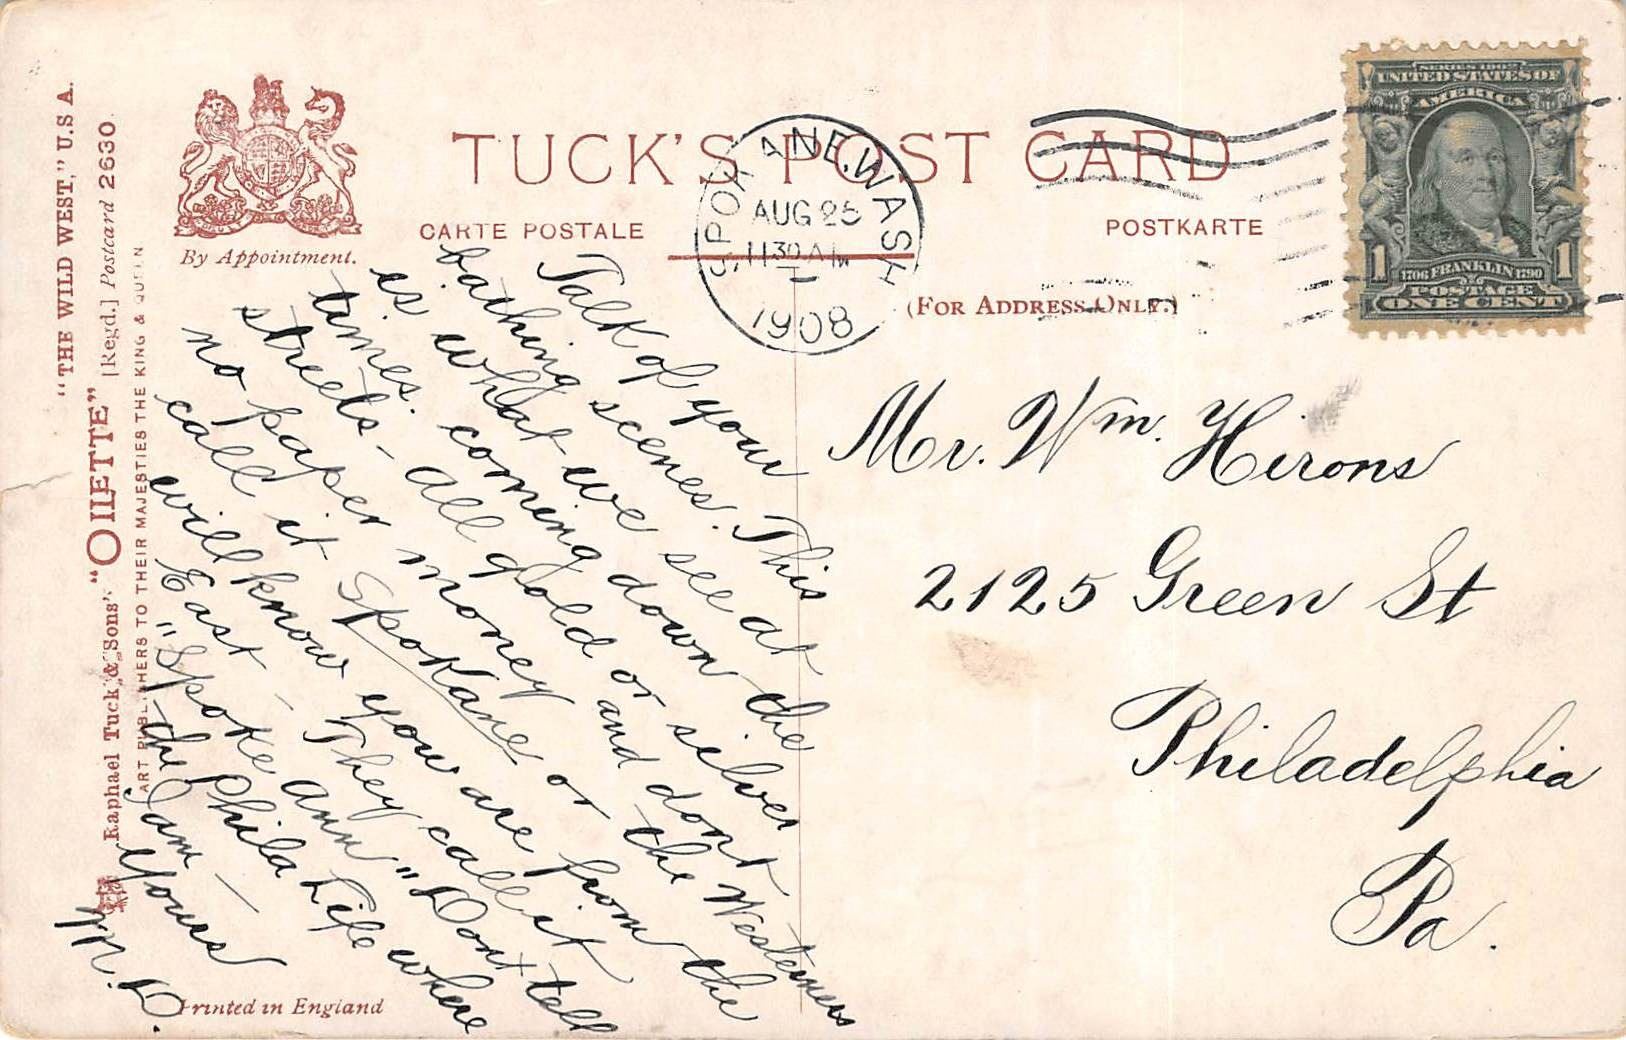 TUCK'S POST CARD
CARTE POSTALE
POSTKARTE
(FOR ADDRESS ONLY.)
By Appointment.
"THE WILD WEST," U.S.A.
Raphael Tuck & Sons' "OILETTE" [Regd.] Postcard 2630.
ART PUBLISHERS TO THEIR MAJESTIES THE KING & QUEEN
Printed in England
SPOKANE, WASH.
AUG 25
1130 AM
1908
SERIES 1902
UNITED STATES OF
AMERICA
1706 FRANKLIN 1790
1 1
POSTAGE
ONE CENT
Talk of your
bathing scenes. This
is what we see at
times. coming down the
streets - all gold or silver
no paper money and dont
call it Spokane or the Westerners
will know you are from the
East - They call it
"Spoke ann" Dont tell
the Phila Life where
I am -
Yours
M.D.
Mr. Wm. Hirons
2125 Green St
Philadelphia
Pa.